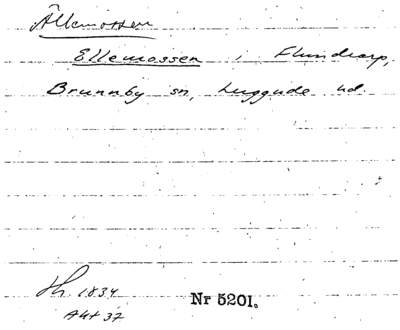 Ällemossen
Ellemossen i Flundrarp,
Brunnby sn, Luggude hd.
Lh. 1834
Akt 37
Nr 5201.